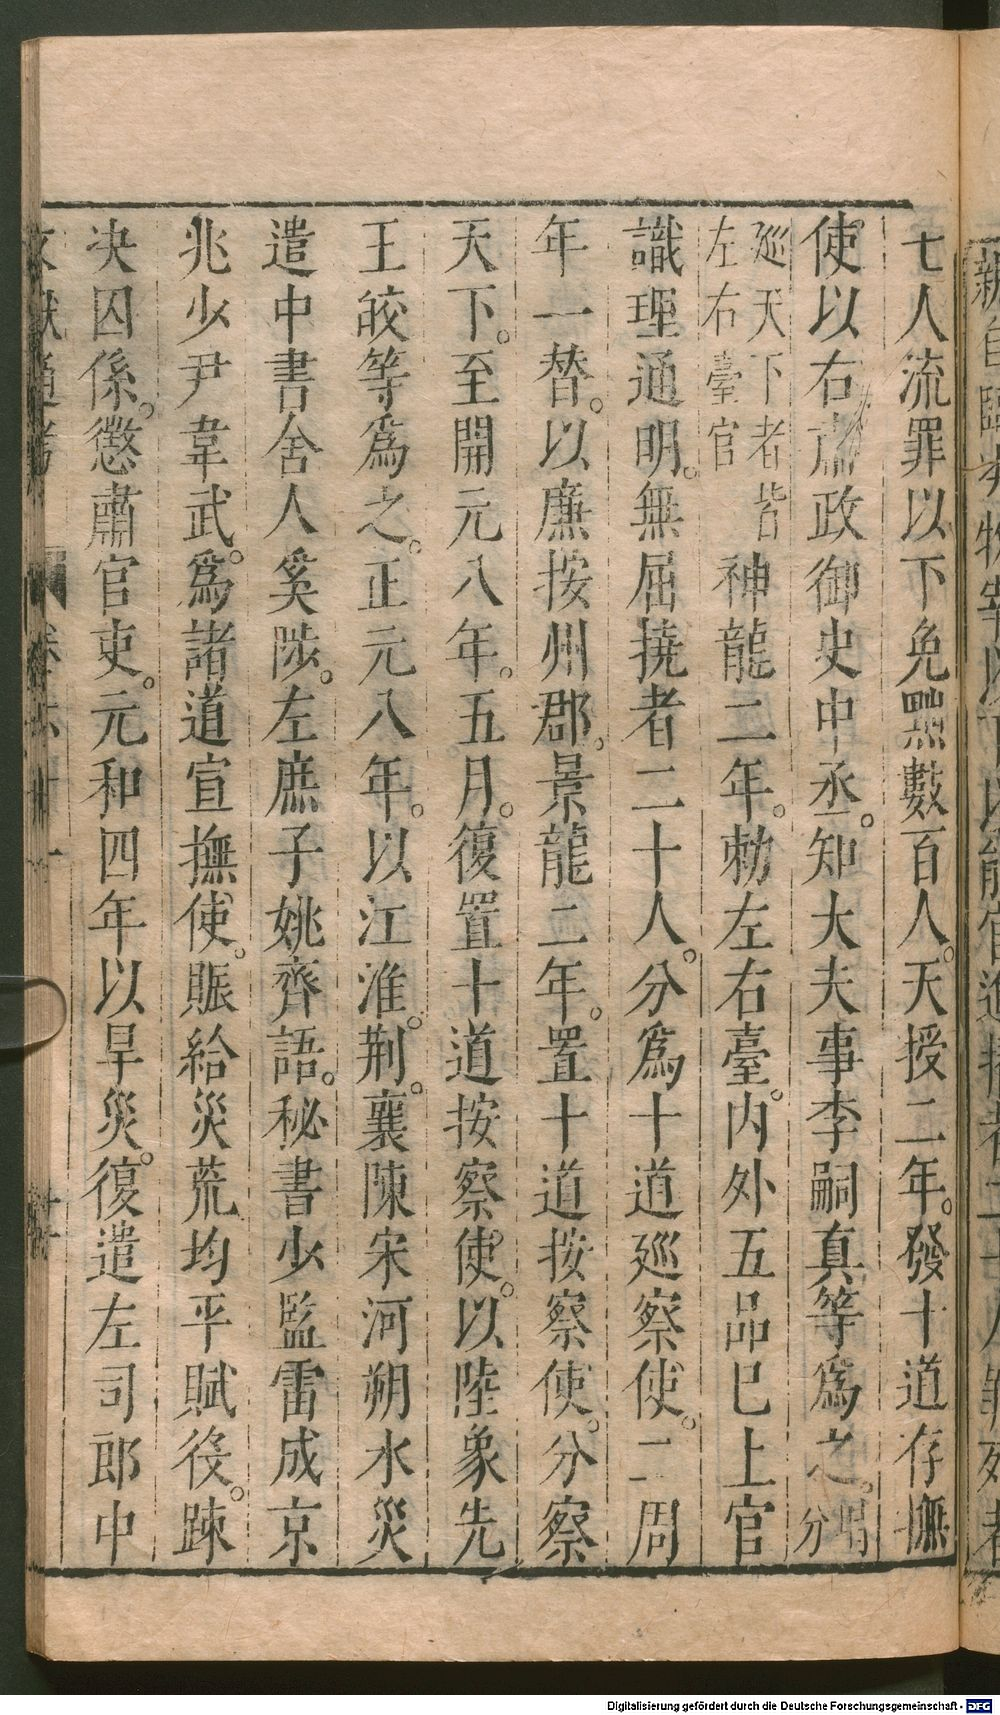 七人流罪以下免黥數百人。天授二年。發十道存撫
使以右肅政御史中丞。知大夫事李嗣真等爲之。唱分
巡天下者皆左右臺官神龍二年。勅左右臺。內外五品已上官
識理通明。無屈撓者二十人。分爲十道巡察使。二周
年一替。以廉按州郡。景龍二年。置十道按察使。分察
天下。至開元八年。五月。復置十道按察使。以陸象先
王皎等爲之。正元八年。以江淮。荆。襄陳宋河朔水災
遣中書舍人奚陟。左庶子姚齊語。秘書少監雷成京
兆少尹韋武。爲諸道宣撫使。賑給災荒均平賦役。踈
决囚係。懲肅官吏。元和四年以旱災。復遣左司郎中
Digitalisierung gefördert durch die Deutsche Forschungsgemeinschaft - DFG